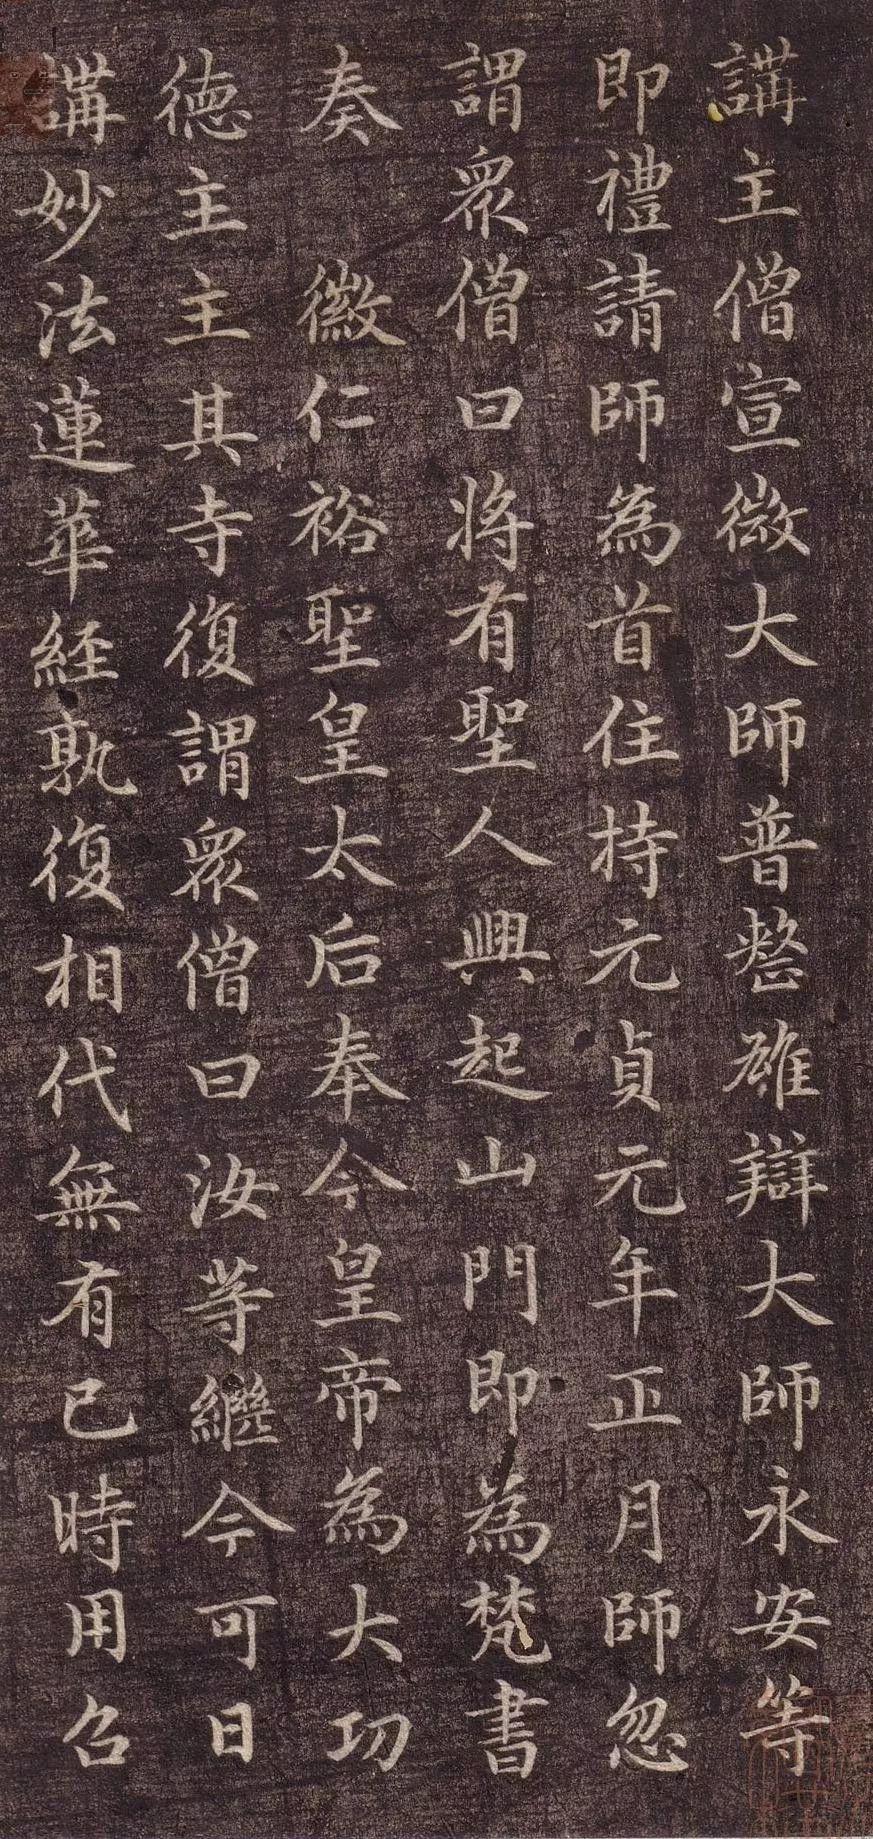 講主僧宣微大師普整雄辯大師永安等
即禮請師為首住持元貞元年正月師忽
謂眾僧曰將有聖人興起山門即為梵書
奏　徽仁裕聖皇太后奉今皇帝為大功
德主主其寺復謂眾僧曰汝等繼今可日
講妙法蓮華經孰復相代無有已時用召